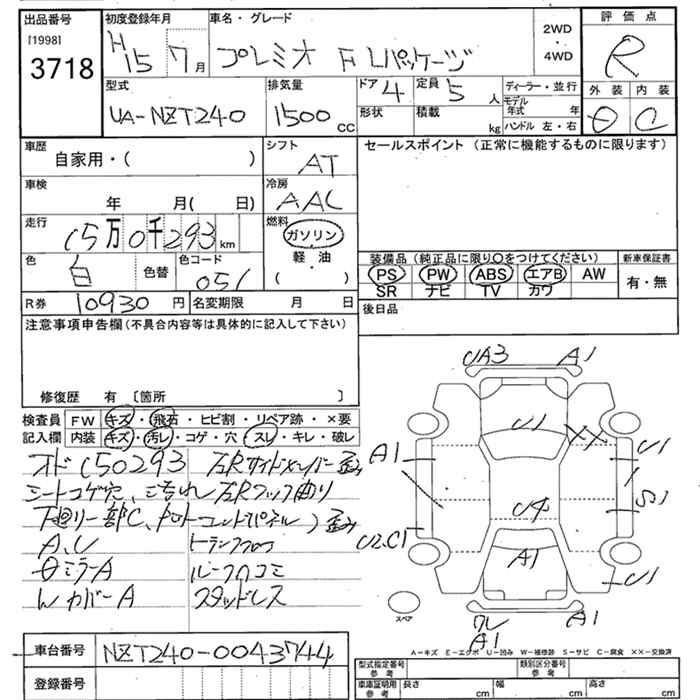 出品番号
[1998]
3718
初度登録年月
H15 7月
車名・グレード
プレミオ F Lパッケージ
2WD
・
4WD
評価点
R
型式
UA-NZT240
排気量
1500 cc
ドア 4
定員 5 人
形状
積載 kg
ディーラー・並行
モデル年式 年
ハンドル 左・右
外装 内装
C
車歴
自家用・( )
車検
年 月( 日)
走行
15万0千293 km
色 白 色替
色コード 051
シフト
AT
冷房
AAC
燃料
ガソリン
軽・油
( )
R券 10930 円
名変期限 月 日
セールスポイント (正常に機能するものに限ります)
装備品 (純正品に限り○をつけてください)
PS PW ABS エアB AW
SR ナビ TV カワ
新車保証書
有・無
後日品
注意事項申告欄 (不具合内容等は具体的に記入して下さい)
修復歴 有 〔箇所 〕
検査員記入欄
FW キズ・飛石・ヒビ割・リペア跡・×要
内装 キズ・汚レ・コゲ・穴・スレ・キレ・破レ
オド150293 左Rサイドメンバー歪み
シートコゲ穴、
下廻り一部C、
A、U トランクフロア
ミラーA ルーフ凹コミ
WカバーA スタッドレス
UA3 A1
U1
XX
A1
U1
S1
U4
U2.C1
A1
U1
スペア
ワレ
A1
A1
A-キズ E-エクボ U-凹み W-補修跡 S-サビ C-腐食 ××-交換済
車台番号 NZT240-0043744
登録番号
型式指定番号
参考
類別区分番号
参考
車庫証明用
参考
長さ cm 幅 cm 高さ cm